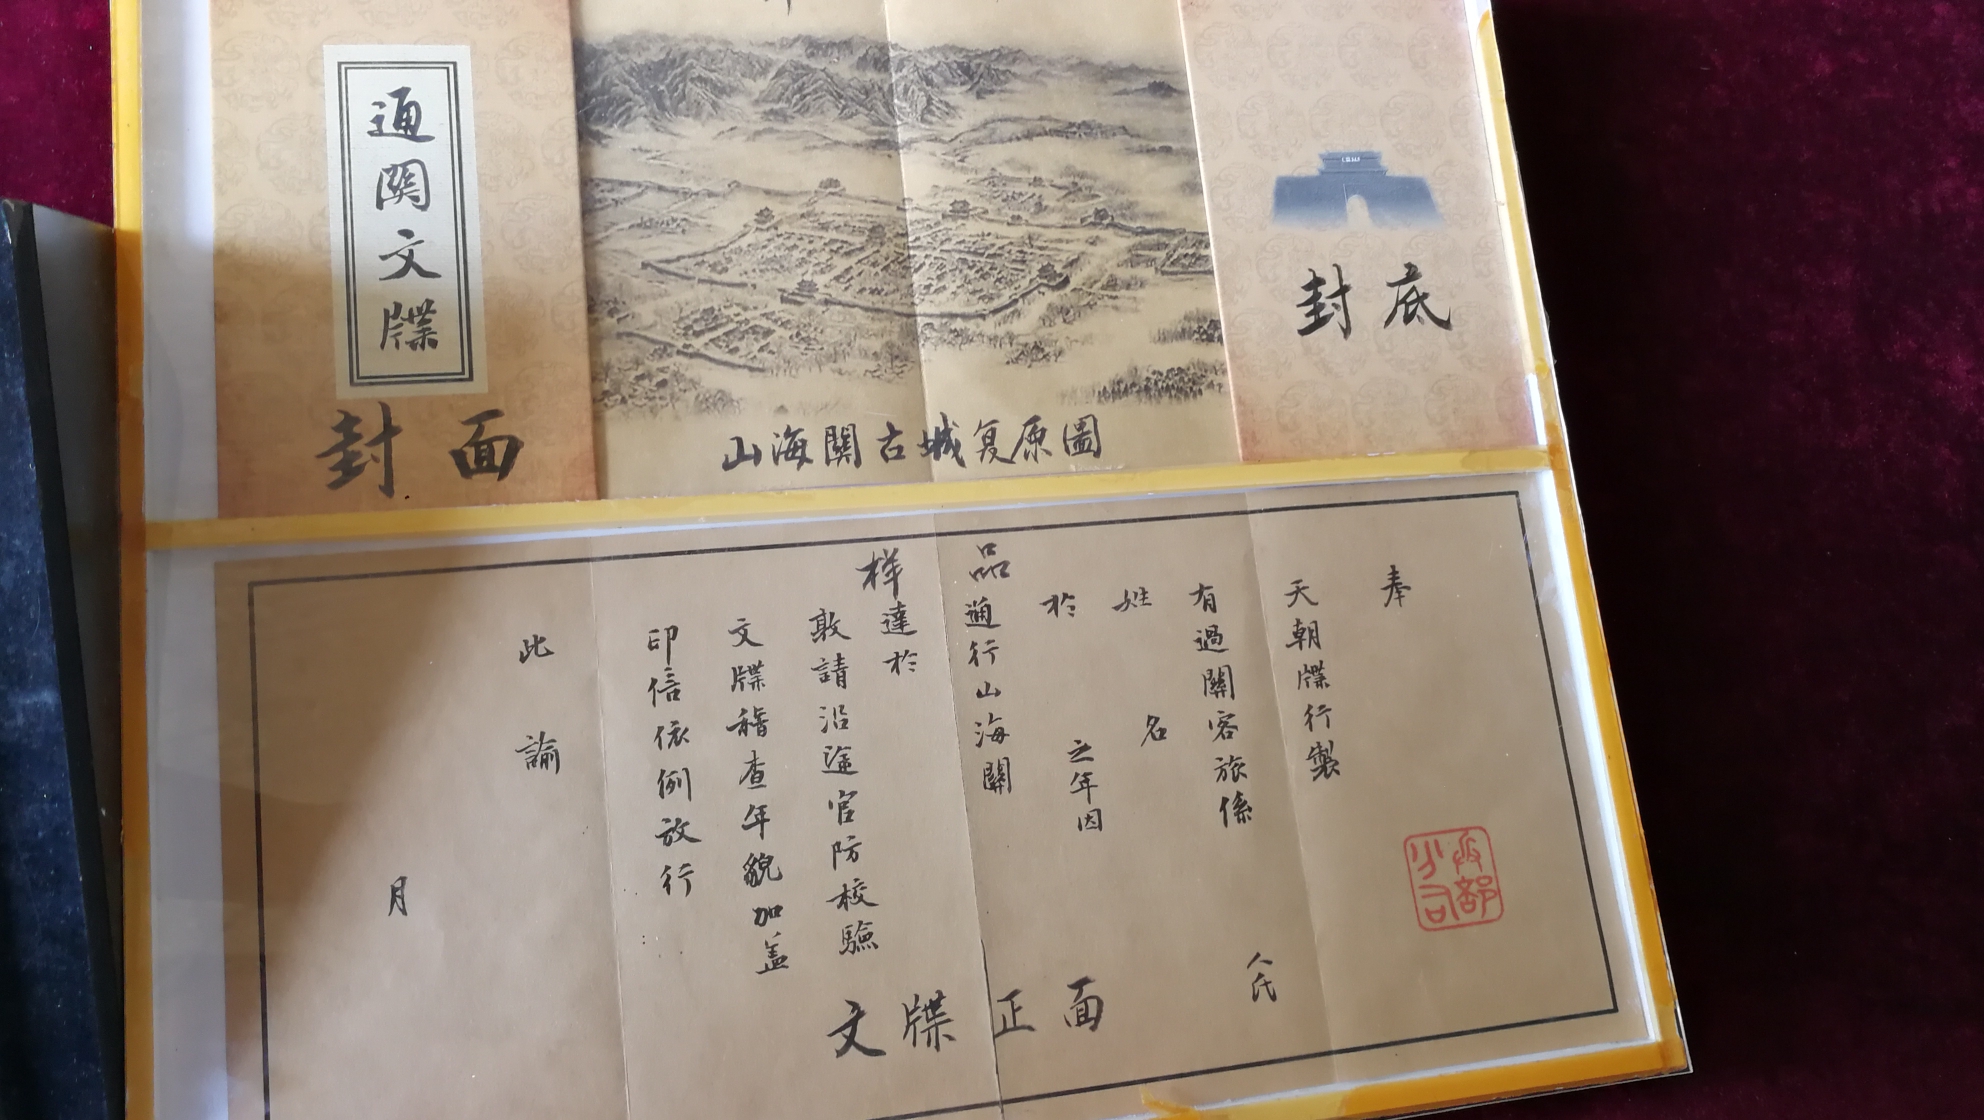 通關文牒
封面
山海關古城复原圖
封底
奉
天朝牒行製
有過關客旅係
人氏
姓名
於
之年因
品
通行山海關
样
達於
敦請沿途官防校驗
文牒稽查年貌加盖
印信依例放行
此諭
月
文牒正面